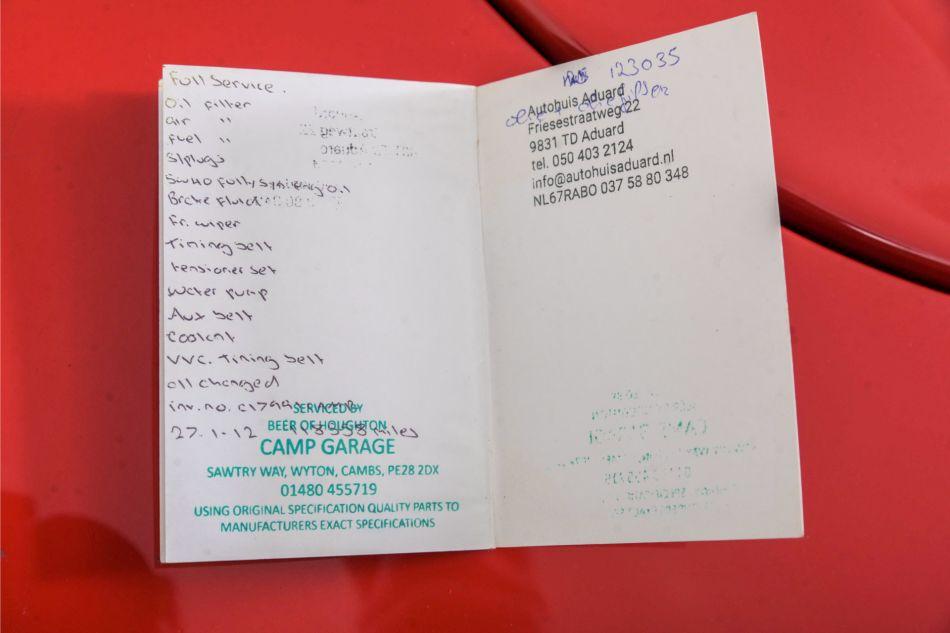 Full Service.
Oil filter
air "
fuel "
S/plugs
5W40 fully synthetic oil
Brake fluid
Fr. wiper
Timing belt
tensioner set
water pump
Aux belt
Coolant
VVC. Timing belt
all changed
inv. no.
27.1-12 miles
SERVICED BY
BEER OF HOUGHTON
CAMP GARAGE
SAWTRY WAY, WYTON, CAMBS, PE28 2DX
01480 455719
USING ORIGINAL SPECIFICATION QUALITY PARTS TO
MANUFACTURERS EXACT SPECIFICATIONS
123035
Autohuis Aduard
Friesestraatweg 22
9831 TD Aduard
tel. 050 403 2124
info@autohuisaduard.nl
NL67RABO 037 58 80 348